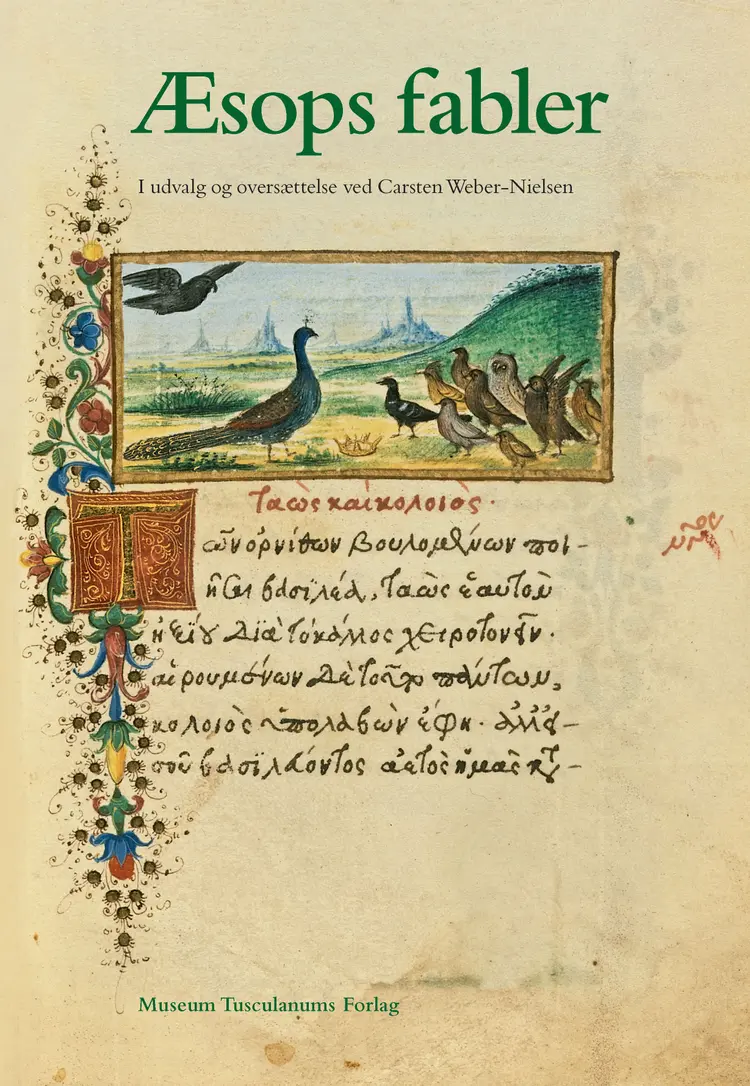 Æsops fabler
I udvalg og oversættelse ved Carsten Weber-Nielsen
Ταὼς καὶ κολοιός·
Τῶν ὀρνίθων βουλομένων ποι-
ῆσαι βασϊλέα, ταὼς ἑαυτὸν
ἠξίου διὰ τὸ κάλλος χειροτονεῖν·
αἱρουμένων δὲ τοῦτον πάντων,
κολοιὸς ὑπολαβὼν ἔφη· ἀλλ' εἰ
σοῦ βασϊλεύοντος ἀετὸς ἡμᾶς
Museum Tusculanums Forlag